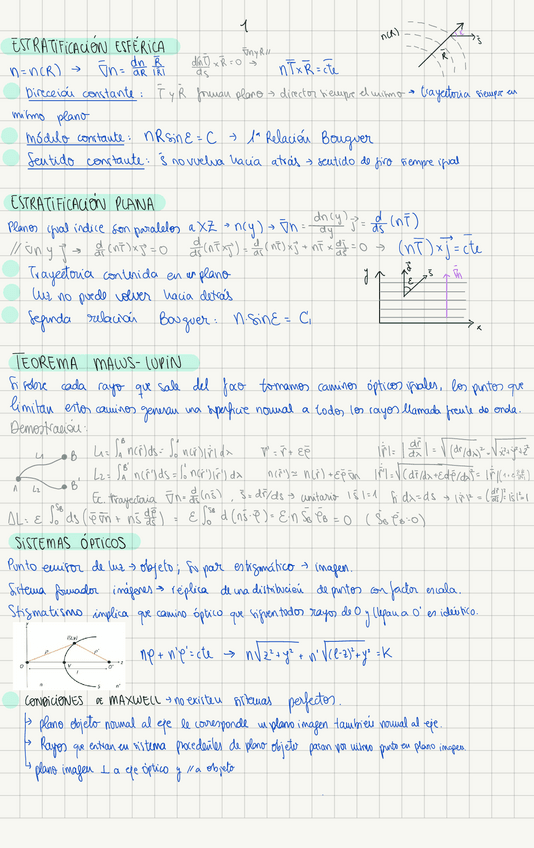 1
ESTRATIFICACIÓN ESFÉRICA
n(R)
R̄
s̄
n=n(R) → ∇̄n = dn/dR R̄/|R̄| d(nT̄)/ds × R̄ = 0 → nT̄×R̄ = c̄te
∇̄n y R̄ //
Dirección constante: T̄ y R̄ forman plano → director siempre el mismo → trayectoria siempre en
mismo plano
Módulo constante: nR sinε = C → 1ª Relación Bouguer
Sentido constante: s̄ no vuelva hacia atrás → sentido de giro siempre igual
ESTRATIFICACIÓN PLANA
Planos igual índice son paralelos a XZ → n(y) → ∇̄n = dn(y)/dy j⃗ = d/ds (nT̄)
// ∇̄n y j⃗ → d/ds(nT̄)×j⃗ = 0 d/ds(nT̄×j⃗) = d/ds(nT̄)×j⃗ + nT̄×dj⃗/ds = 0 → (nT̄)×j⃗ = c̄te
Trayectoria contenida en un plano
Luz no puede volver hacia detrás
Segunda relación Bouguer: n·sinε = C₁
y
ε
s
∇̄n
x
TEOREMA MALUS-LUPIN
Si sobre cada rayo que sale del foco tomamos caminos ópticos iguales, los puntos que
limitan estos caminos generan una superficie normal a todos los rayos llamada frente de onda.
Demostración:
A
L₁
B
L₂
B'
SISTEMAS ÓPTICOS
Punto emisor de luz → objeto; su par estigmático → imagen.
Sistema formador imágenes → réplica de una distribución de puntos con factor escala.
Stigmatismo implica que camino óptico que siguen todos rayos de O y llegan a O' es idéntico.
nρ + n'ρ' = cte → n√(z²+y²) + n'√((l-z)²+y²) = K
CONDICIONES DE MAXWELL → no existen sistemas perfectos.
plano objeto normal al eje le corresponde un plano imagen también normal al eje.
Rayos que entran en sistema procedentes de plano objeto pasan por mismo punto en plano imagen
plano imagen ⊥ a eje óptico y // a objeto